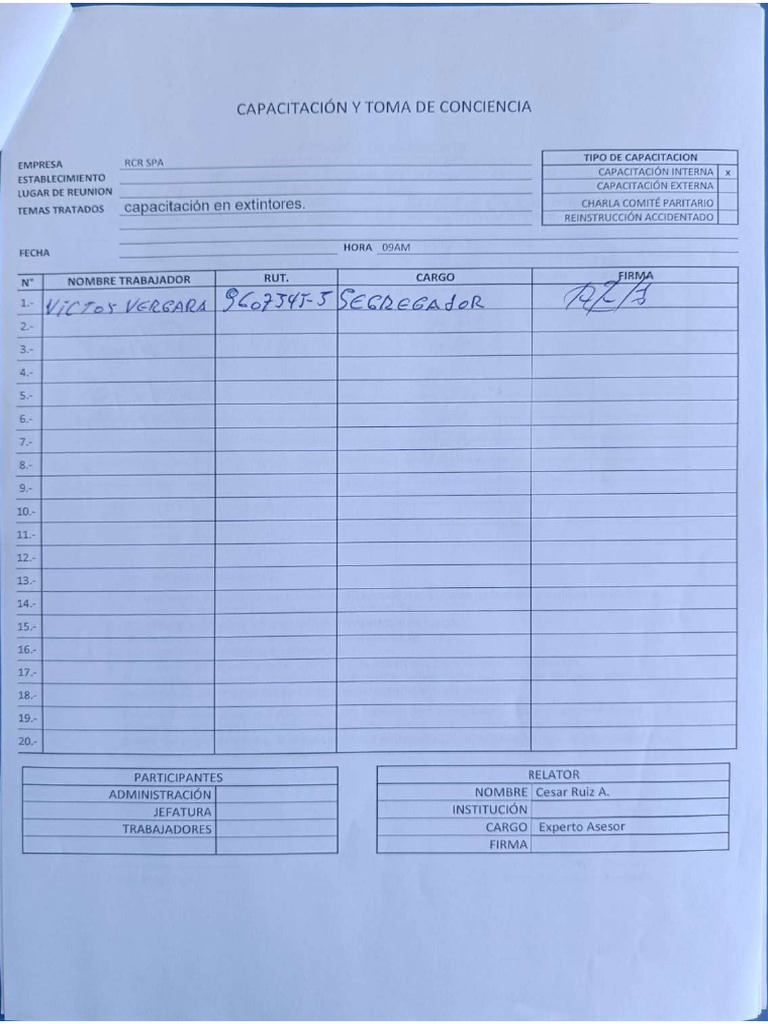 CAPACITACIÓN Y TOMA DE CONCIENCIA
EMPRESA RCR SPA
ESTABLECIMIENTO
LUGAR DE REUNION
TEMAS TRATADOS capacitación en extintores.
FECHA HORA 09AM
TIPO DE CAPACITACION
CAPACITACIÓN INTERNA x
CAPACITACIÓN EXTERNA
CHARLA COMITÉ PARITARIO
REINSTRUCCIÓN ACCIDENTADO
N° NOMBRE TRABAJADOR RUT. CARGO FIRMA
1.- VERGARA SEGREGADOR
2.-
3.-
4.-
5.-
6.-
7.-
8.-
9.-
10.-
11.-
12.-
13.-
14.-
15.-
16.-
17.-
18.-
19.-
20.-
PARTICIPANTES
ADMINISTRACIÓN
JEFATURA
TRABAJADORES
RELATOR
NOMBRE Cesar Ruiz A.
INSTITUCIÓN
CARGO Experto Asesor
FIRMA